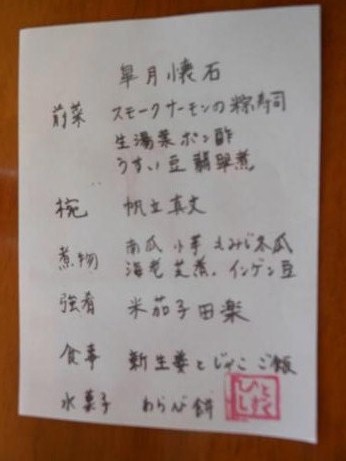 皐月懐石
前菜 スモークサーモンの粽寿司
生湯葉ポン酢
うすい豆翡翠煮
椀 帆立真丈
煮物 南瓜 小芋 もみじ冬瓜
海老芝煮、インゲン豆
強肴 米茄子田楽
食事 新生姜とじゃこご飯
水菓子 わらび餅